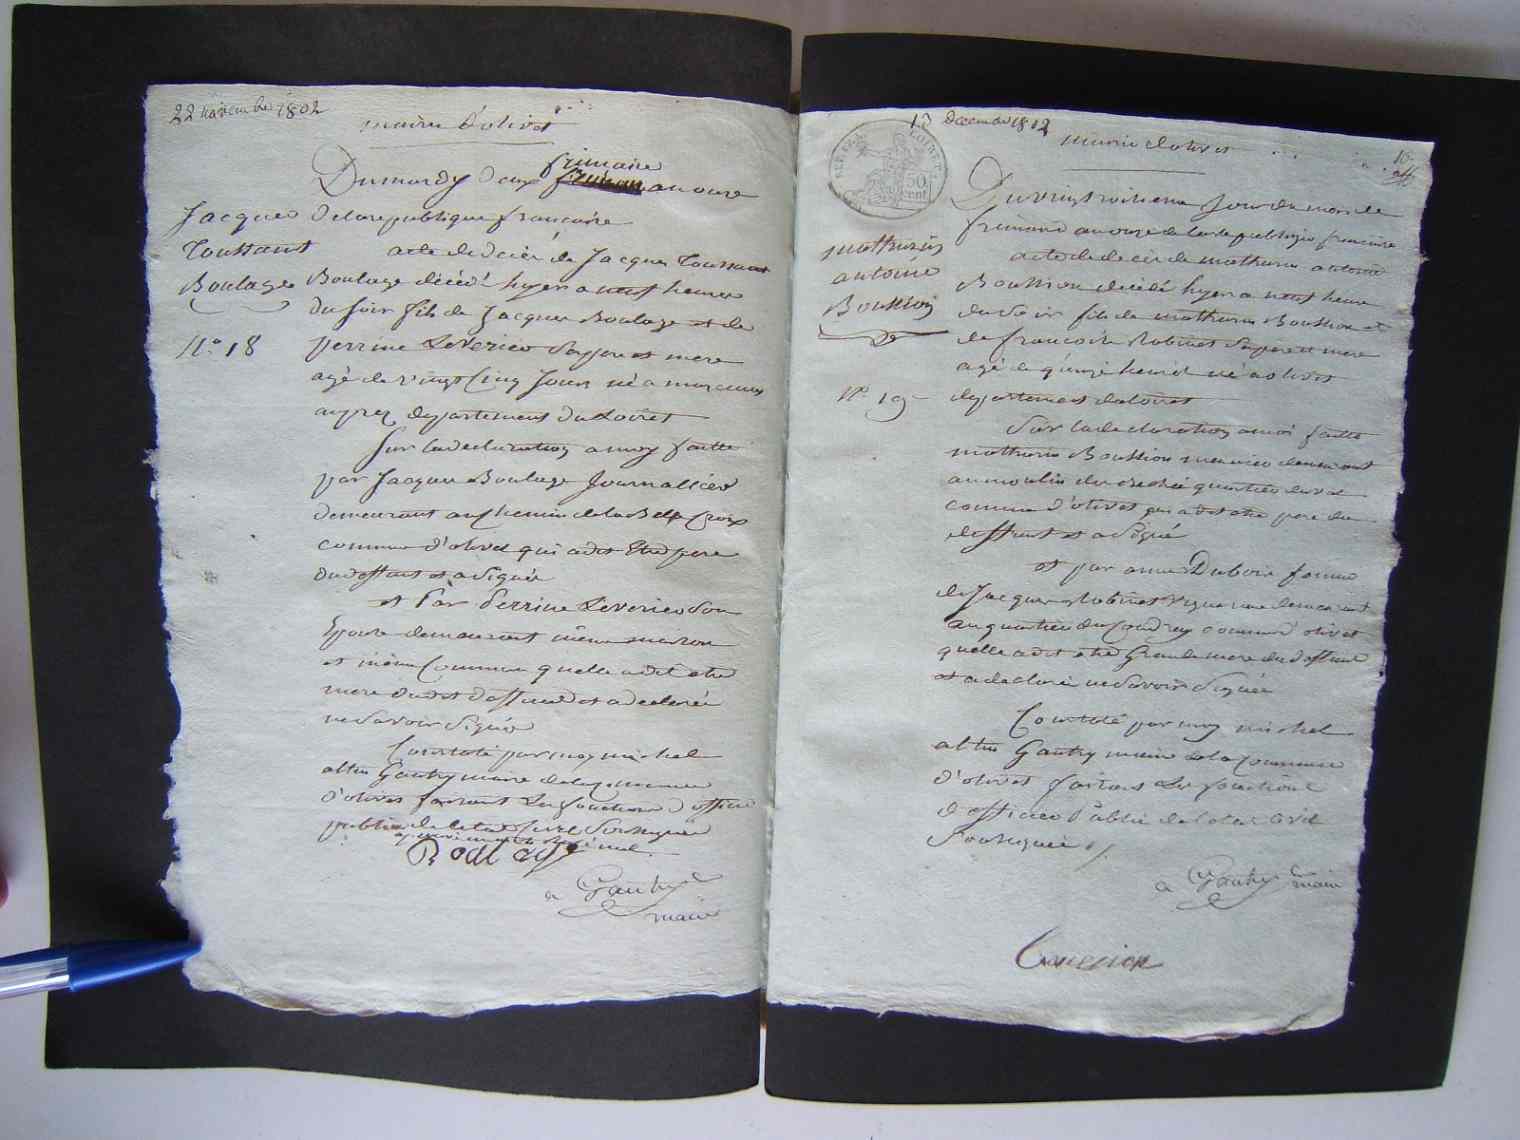 22 novembre 1802
mairie d'olivet
Du mardy deux frimaire an onze
Jacques
Toussaint
Boulage
N.o 18
de la republique francaise
acte de décès de Jacques Toussaint
Boulage décédé hyer a neuf heures
du soir fils de Jacques Boulage et de
perrine Leverico Sapere et mere
agé de vingt Cinq Jours né a
aupres departement du Loiret
Sur la declaration a moy faitte
par Jacques Boulage Journallier
demeurant au Chemin de la Belle Croix
commune d'olivet qui a dit Etre pere
du deffunt et a Signée
et Par Perrine Leverico Son
Epouse demeurant même maison
et même Commune quelle a dit etre
mere dudit deffunt et a declarée
ne Savoir Signée
Constaté par moy michel
altin Gautry maire de la commune
d'olivet faisant Les fonctions d'officier
public de l'etat Civil Soussignée
a Gautry
maire
13 Decembre 1802
mairie d'olivet
50
cent
mathurin
antoine
Boussion
N.o 19
Du vingt troisieme Jour du mois de
frimaire an onze de la republique francaise
acte de decès de mathurin antoine
Boussion décédé hyer a neuf heure
du Soir fils de mathurin Boussion et
de francoise Robinet Sapere et mere
agé de quinze heures né a olivet
departement du Loiret
Sur la declaration a moi faitte
mathurin Boussion meunier demeurant
au moulin du quartier du val
commune d'olivet qui a dit etre pere du
deffunt et a Signé
et par anne Duboir femme
de Jacques Robinet vigneron demeurant
au quartier du Coudray commune d'olivet
quelle a dit etre Grande mere du deffunt
et a declaré ne Savoir Signée
Constaté par moy michel
altin Gautry maire de la Commune
d'olivet faisant Les fonctions
d'officier Public de l'etat Civil
Soussignée
a Gautry maire